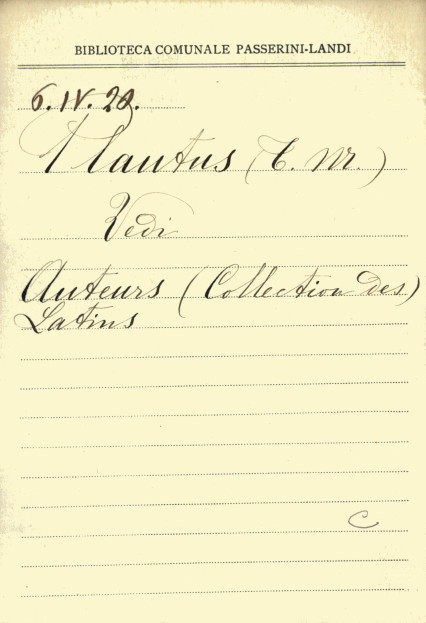 BIBLIOTECA COMUNALE PASSERINI-LANDI
6.IV.28.
Plautus (T. M.)
Vedi
Auteurs (Collection des)
Latins
C